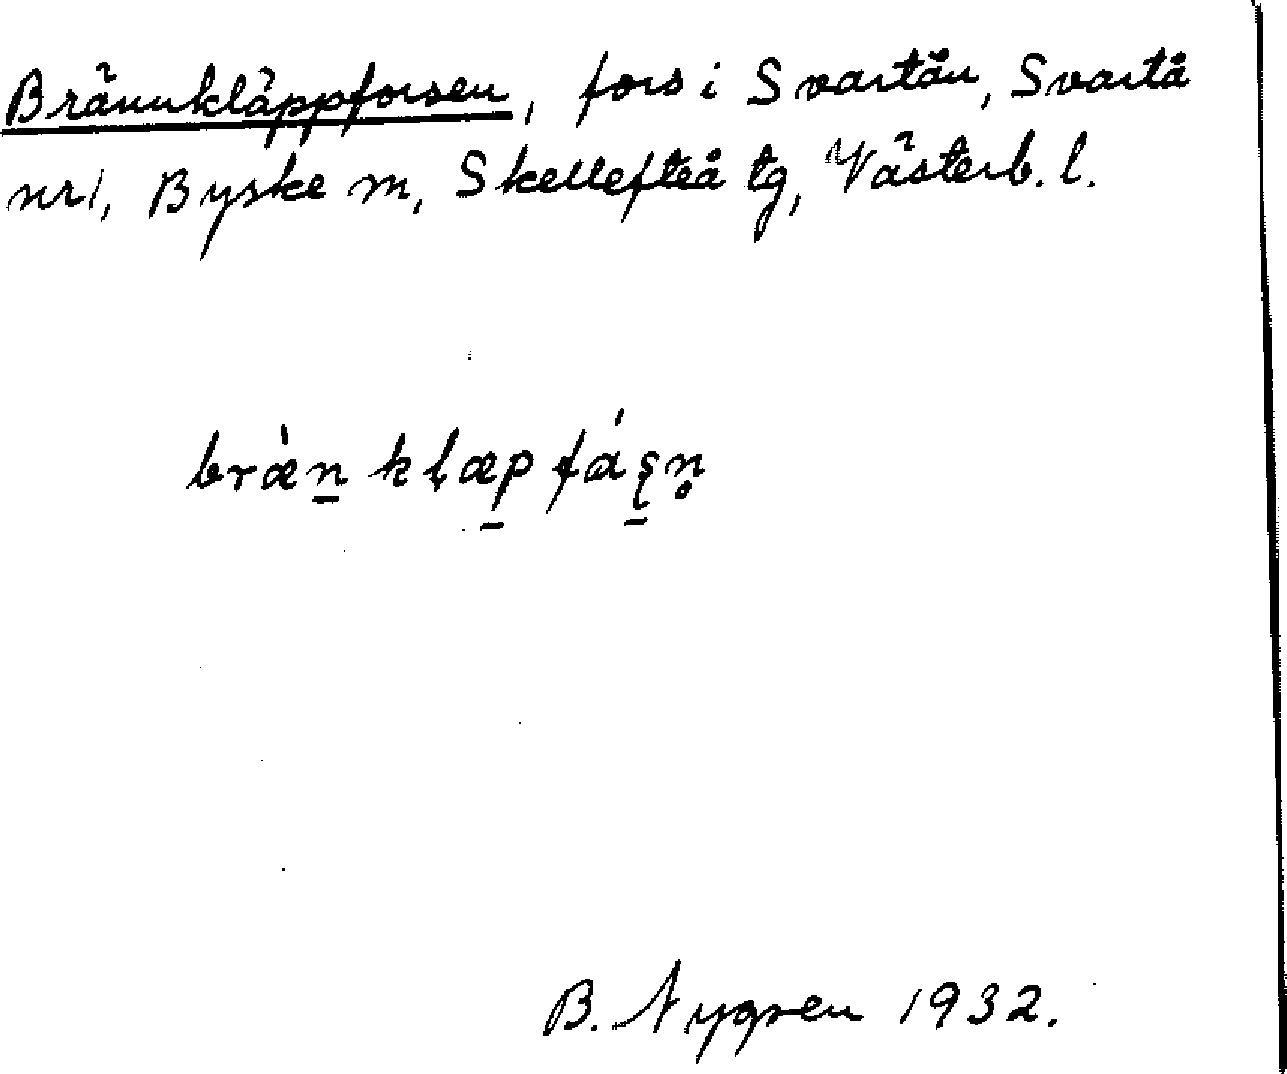 Brännkläppforsen, fors i Svartån, Svartå
nr 1, Byske m, Skellefteå tg, Västerb. l.
bræ̀n̲ kl̥æp̲ fáş̲n̥
B. Nygren 1932.